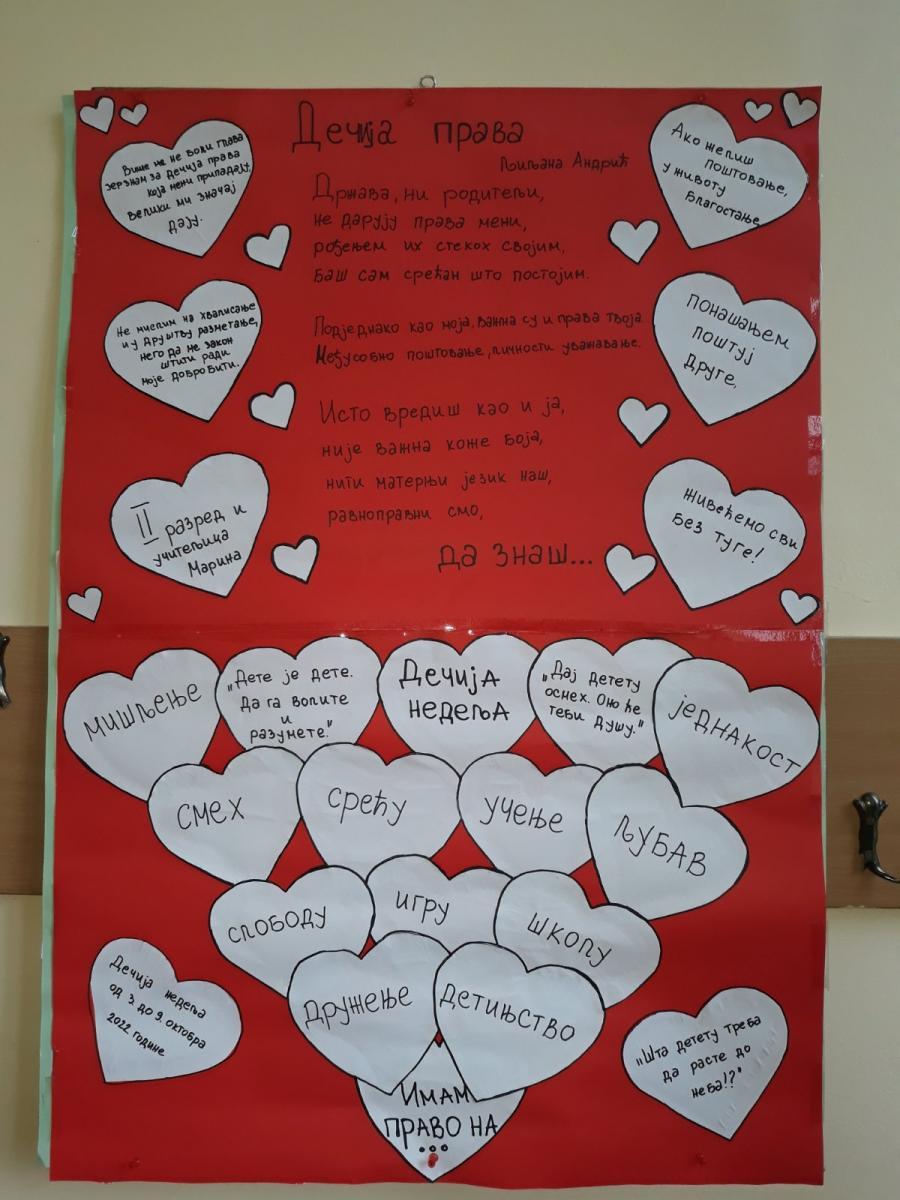 Дечија права
Љиљана Андрић
Држава, ни родитељи,
не дарују права мени,
рођењем их стекох својим,
баш сам срећан што постојим.
Подједнако као моја, важна су и права твоја
Међусобно поштовање, личности уважавање.
Исто вредиш као и ја,
није важна коже боја,
нити матерњи језик наш,
равноправни смо,
да знаш...
Ако желиш
поштовање,
у животу
благостање,
понашањем
поштуј
друге,
живећемо сви
без туге!
Више ме не боли глава
јер знам за дечија права
која мени припадају,
велики ми значај
дају.
Не мислим на хвалисање
и у друштву разметање,
него да ме закон
штити ради
моје добробити.
II разред и
учитељица
Марина
мишљење
„Дете је дете.
Да га волите
и
разумете."
Дечија
недеља
„Дај детету
осмех. Оно ће
теби душу."
једнакост
смех
срећу
учење
љубав
слободу
игру
школу
дружење
детињство
Имам
право на
...
Дечија недеља
од 3. до 9. октобра
2022. године
„Шта детету треба
да расте до
неба!?"